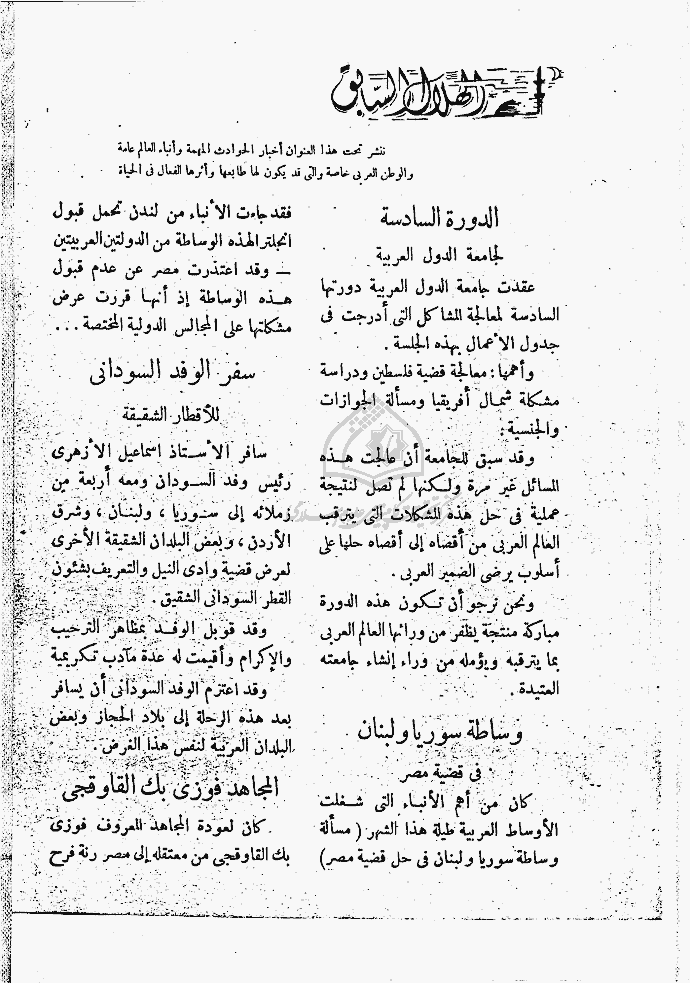 الهلال السابق
ننشر تحت هذا العنوان أخبار الحوادث المهمة وأنباء العالم عامة
والوطن العربى خاصة والتى قد يكون لها طابعها وأثرها الفعال فى الحياة
الدورة السادسة
لجامعة الدول العربية
عقدت جامعة الدول العربية دورتها
السادسة لمعالجة المشاكل التى أدرجت فى
جدول الأعمال بهذه الجلسة .
وأهمها : معالجة قضية فلسطين ودراسة
مشكلة شمال أفريقيا ومسألة الجوازات
والجنسية :
وقد سبق للجامعة أن عالجت هذه
المسائل غير مرة ولكنها لم تصل لنتيجة
عملية فى حل هذه المشكلات التى يترقب
العالم العربى من أقصاه إلى أقصاه حلها على
أسلوب يرضى الضمير العربى .
ونحن نرجو أن تكون هذه الدورة
مباركة منتجة يظفر من ورائها العالم العربى
بما يترقبه ويؤمله من وراء إنشاء جامعته
العتيدة .
وساطة سوريا ولبنان
فى قضية مصر
كان من أهم الأنباء التى شغلت
الأوساط العربية طيلة هذا الشهر ( مسألة
وساطة سوريا ولبنان فى حل قضية مصر )
فقد جاءت الأنباء من لندن تحمل قبول
انجلترا لهذه الوساطة من الدولتين العربيتين
— وقد اعتذرت مصر عن عدم قبول
هذه الوساطة إذ أنها قررت عرض
مشكلتها على المجالس الدولية المختصة ...
سفر الوفد السودانى
للأقطار الشقيقة
سافر الأستاذ اسماعيل الأزهرى
رئيس وفد السودان ومعه أربعة من
زملائه إلى سوريا ، ولبنان ، وشرق
الأردن ، وبعض البلدان الشقيقة الأخرى
لعرض قضية وادى النيل والتعريف بشئون
القطر السودانى الشقيق .
وقد قوبل الوفد بمظاهر الترحيب
والإكرام وأقيمت له عدة مآدب تكريمية
وقد اعتزم الوفد السودانى أن يسافر
بعد هذه الرحلة إلى بلاد الحجاز وبعض
البلدان العربية لنفس هذا الغرض .
المجاهد فوزى بك القاوقجى
كان لعودة المجاهد المعروف فوزى
بك القاوقجى من معتقله إلى مصر رنة فرح